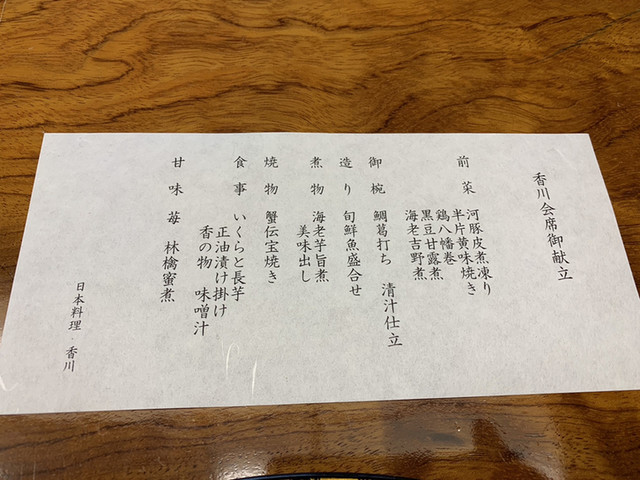 香川会席御献立
前菜 河豚皮煮凍り
半片黄味焼き
鶏八幡巻
黒豆甘露煮
海老吉野煮
御椀 鯛葛打ち 清汁仕立
造り 旬鮮魚盛合せ
煮物 海老芋旨煮
美味出し
焼物 蟹伝宝焼き
食事 いくらと長芋
正油漬け掛け
香の物 味噌汁
甘味 苺 林檎蜜煮
日本料理 香川